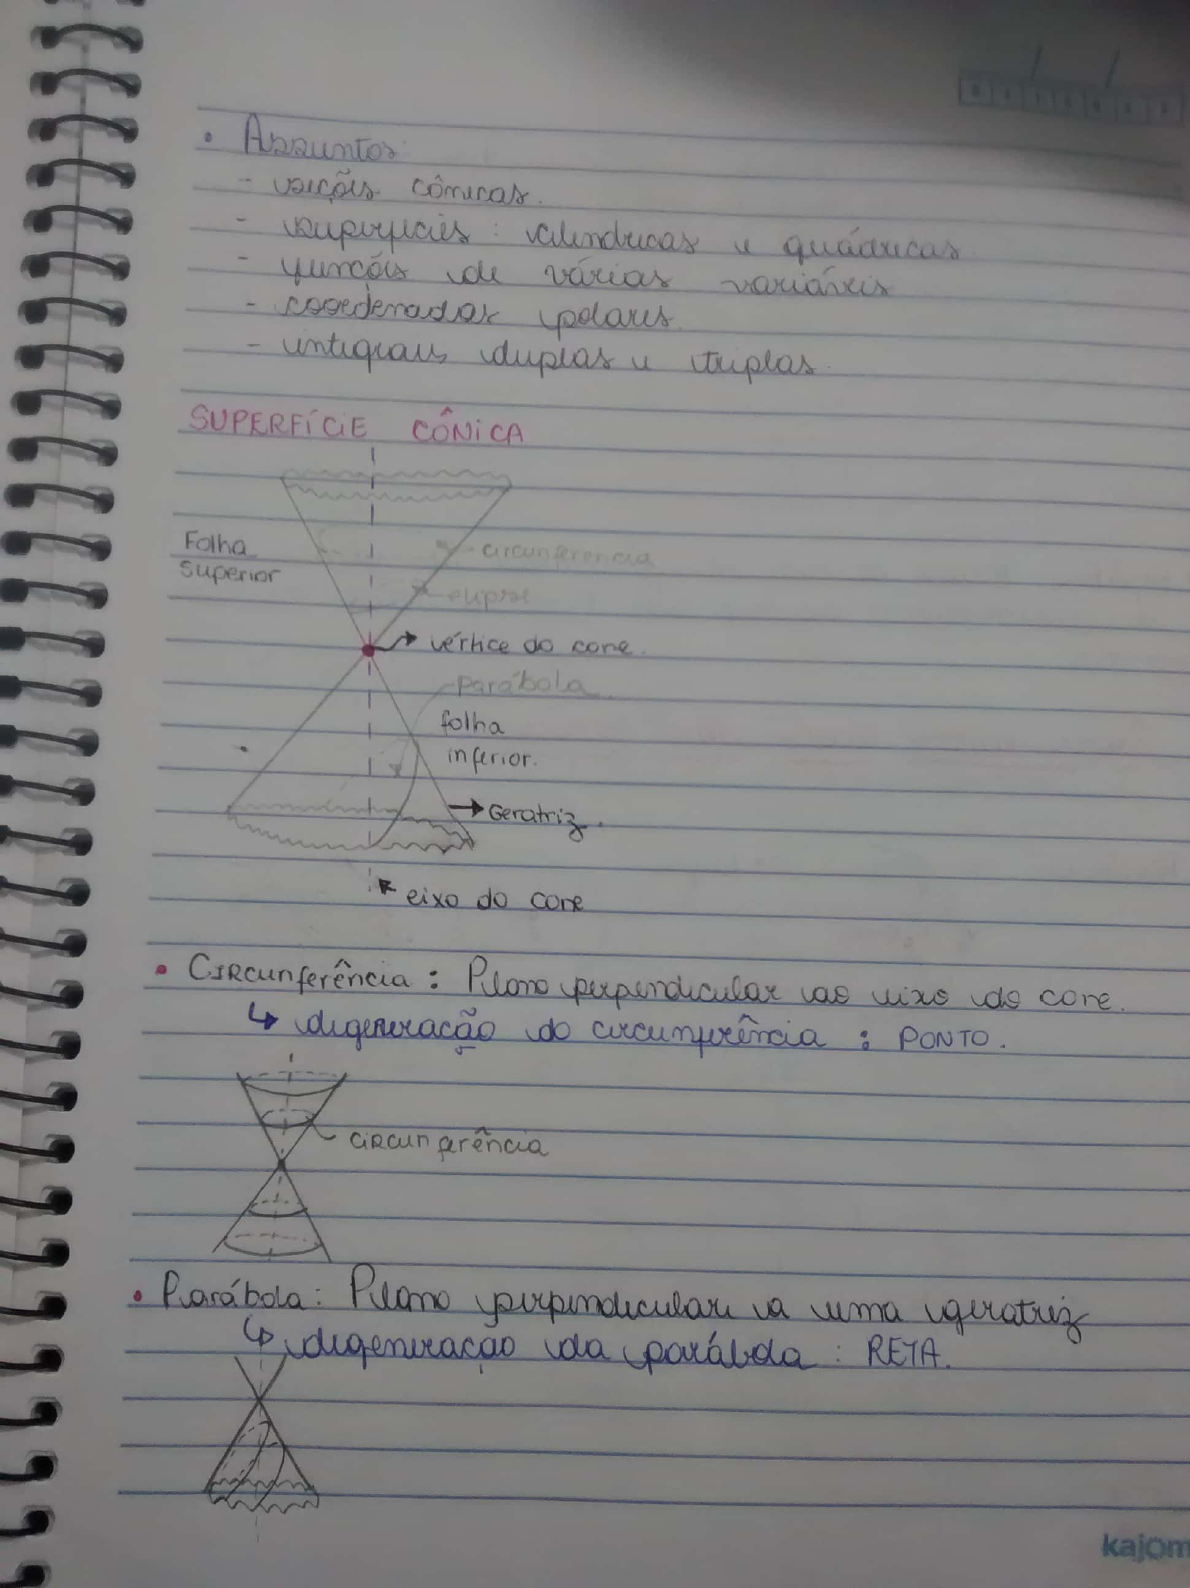 • Assuntos:
- seições cônicas.
- superfícies: cilindricas e quádricas
- funções de várias variáveis
- coordenadas polares.
- integrais duplas e triplas.
SUPERFÍCIE CÔNICA
Folha superior
circunferência
elipse
vértice do cone.
parábola
folha inferior.
Geratriz.
eixo do cone
• Circunferência: Plano perpendicular ao eixo do cone.
↳ degeneração do circunferência: PONTO.
circunferência
• Parábola: Plano perpendicular a uma geratriz
↳ degeneração da parábola: RETA.
kajom